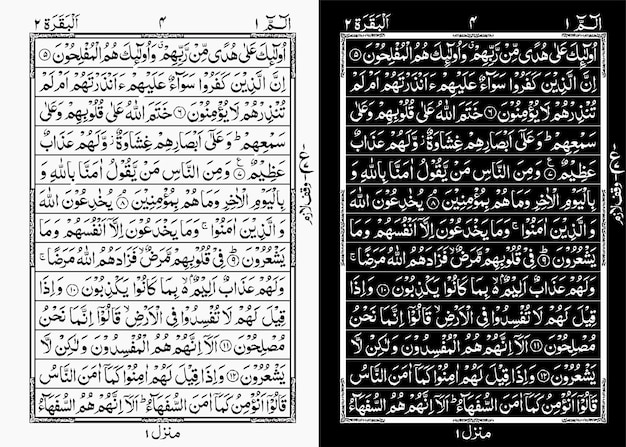 الٓمّٓ ١ ۴ اَلْبَقَرَة ٢
اُولٰٓئِكَ عَلٰى هُدًى مِّنْ رَّبِّهِمْ ۗ وَاُولٰٓئِكَ هُمُ الْمُفْلِحُوْنَ ۵
اِنَّ الَّذِيْنَ كَفَرُوْا سَوَآءٌ عَلَيْهِمْ ءَاَنْذَرْتَهُمْ اَمْ لَمْ
تُنْذِرْهُمْ لَا يُؤْمِنُوْنَ ۶ خَتَمَ اللّٰهُ عَلٰى قُلُوْبِهِمْ وَعَلٰى
سَمْعِهِمْ ؕ وَعَلٰٓى اَبْصَارِهِمْ غِشَاوَةٌ ز وَّلَهُمْ عَذَابٌ
عَظِيْمٌ ۷ وَمِنَ النَّاسِ مَنْ يَّقُوْلُ اٰمَنَّا بِاللّٰهِ وَ
بِالْيَوْمِ الْاٰخِرِ وَمَا هُمْ بِمُؤْمِنِيْنَ ۸ يُخٰدِعُوْنَ اللّٰهَ
وَ الَّذِيْنَ اٰمَنُوْا ۚ وَمَا يَخْدَعُوْنَ اِلَّآ اَنْفُسَهُمْ وَمَا
يَشْعُرُوْنَ ۹ فِيْ قُلُوْبِهِمْ مَّرَضٌ ۙ فَزَادَهُمُ اللّٰهُ مَرَضًا ۚ
وَلَهُمْ عَذَابٌ اَلِيْمٌ ۙ۬ بِمَا كَانُوْا يَكْذِبُوْنَ ۱۰ وَاِذَا
قِيْلَ لَهُمْ لَا تُفْسِدُوْا فِي الْاَرْضِ ۙ قَالُوْٓا اِنَّمَا نَحْنُ
مُصْلِحُوْنَ ۱۱ اَلَآ اِنَّهُمْ هُمُ الْمُفْسِدُوْنَ وَلٰكِنْ لَّا
يَشْعُرُوْنَ ۱۲ وَاِذَا قِيْلَ لَهُمْ اٰمِنُوْا كَمَآ اٰمَنَ النَّاسُ
قَالُوْٓا اَنُؤْمِنُ كَمَآ اٰمَنَ السُّفَهَآءُ ؕ اَلَآ اِنَّهُمْ هُمُ السُّفَهَآءُ
منزل ١
وقف لازم
الٓمّٓ ١ ۴ اَلْبَقَرَة ٢
اُولٰٓئِكَ عَلٰى هُدًى مِّنْ رَّبِّهِمْ ۗ وَاُولٰٓئِكَ هُمُ الْمُفْلِحُوْنَ ۵
اِنَّ الَّذِيْنَ كَفَرُوْا سَوَآءٌ عَلَيْهِمْ ءَاَنْذَرْتَهُمْ اَمْ لَمْ
تُنْذِرْهُمْ لَا يُؤْمِنُوْنَ ۶ خَتَمَ اللّٰهُ عَلٰى قُلُوْبِهِمْ وَعَلٰى
سَمْعِهِمْ ؕ وَعَلٰٓى اَبْصَارِهِمْ غِشَاوَةٌ ز وَّلَهُمْ عَذَابٌ
عَظِيْمٌ ۷ وَمِنَ النَّاسِ مَنْ يَّقُوْلُ اٰمَنَّا بِاللّٰهِ وَ
بِالْيَوْمِ الْاٰخِرِ وَمَا هُمْ بِمُؤْمِنِيْنَ ۸ يُخٰدِعُوْنَ اللّٰهَ
وَ الَّذِيْنَ اٰمَنُوْا ۚ وَمَا يَخْدَعُوْنَ اِلَّآ اَنْفُسَهُمْ وَمَا
يَشْعُرُوْنَ ۹ فِيْ قُلُوْبِهِمْ مَّرَضٌ ۙ فَزَادَهُمُ اللّٰهُ مَرَضًا ۚ
وَلَهُمْ عَذَابٌ اَلِيْمٌ ۙ۬ بِمَا كَانُوْا يَكْذِبُوْنَ ۱۰ وَاِذَا
قِيْلَ لَهُمْ لَا تُفْسِدُوْا فِي الْاَرْضِ ۙ قَالُوْٓا اِنَّمَا نَحْنُ
مُصْلِحُوْنَ ۱۱ اَلَآ اِنَّهُمْ هُمُ الْمُفْسِدُوْنَ وَلٰكِنْ لَّا
يَشْعُرُوْنَ ۱۲ وَاِذَا قِيْلَ لَهُمْ اٰمِنُوْا كَمَآ اٰمَنَ النَّاسُ
قَالُوْٓا اَنُؤْمِنُ كَمَآ اٰمَنَ السُّفَهَآءُ ؕ اَلَآ اِنَّهُمْ هُمُ السُّفَهَآءُ
منزل ١
وقف لازم